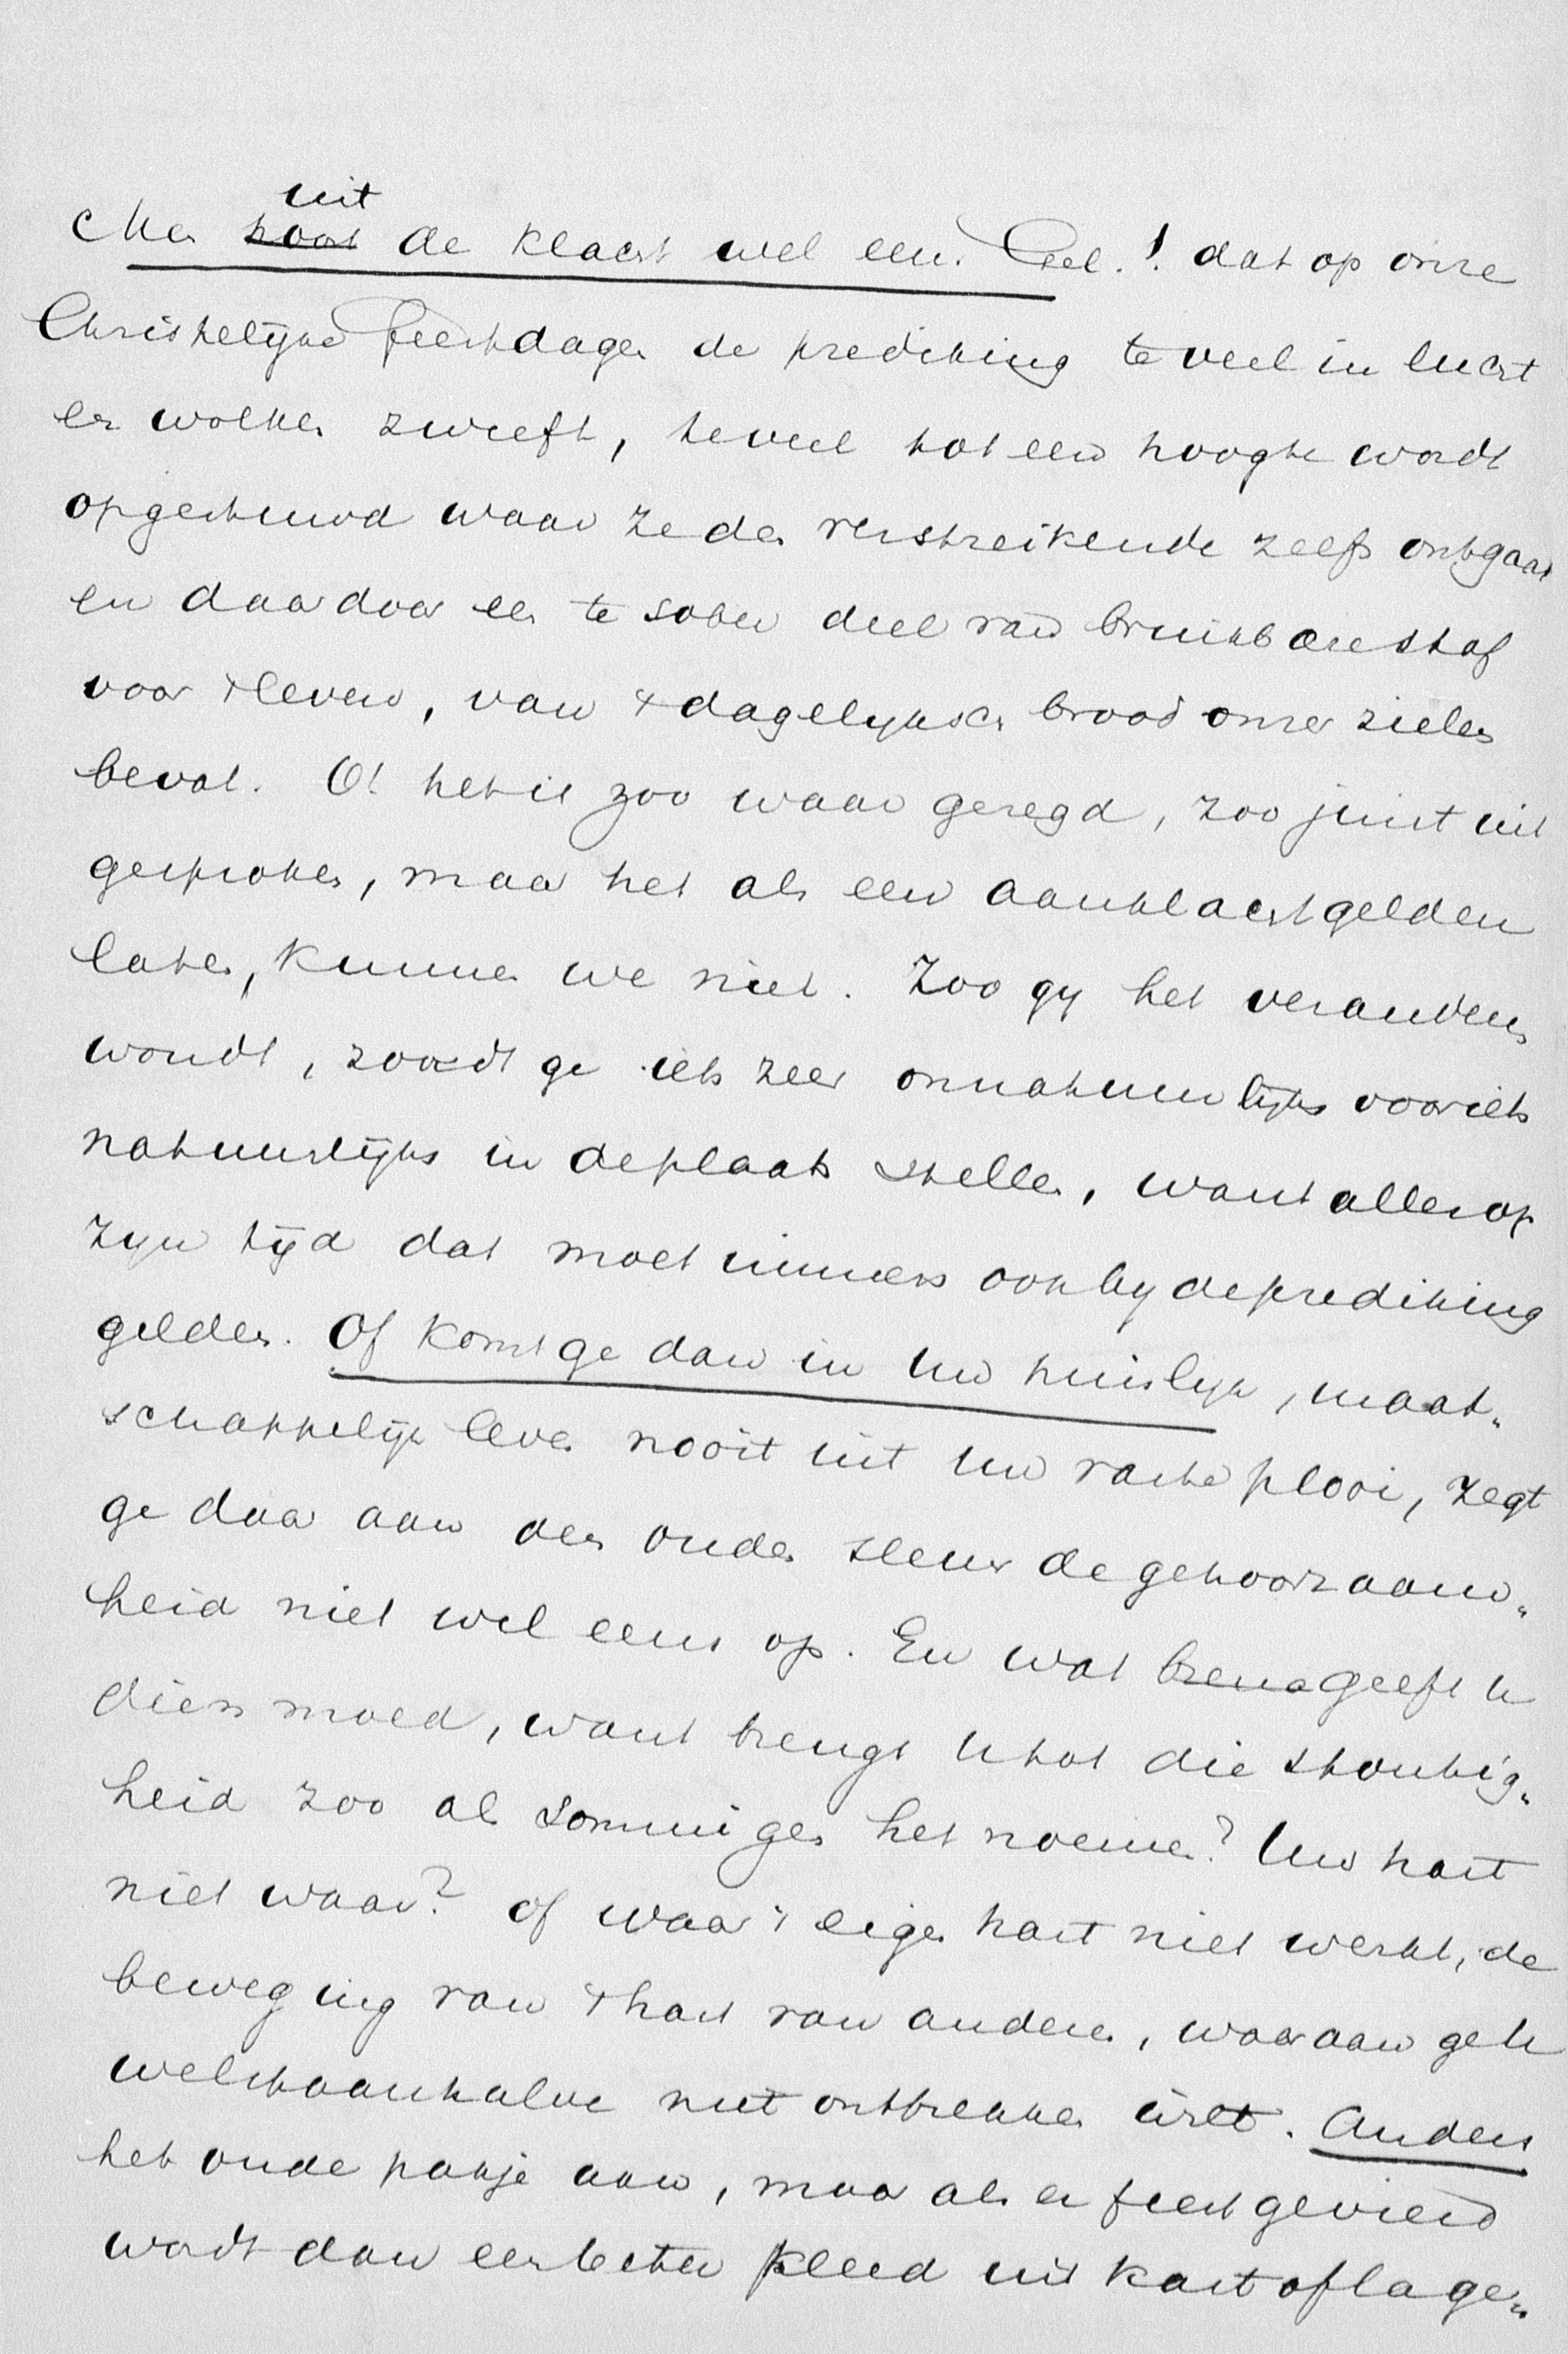 uit
Men hoort de klacht wel eens Gel.! dat op onze
Christelijke feestdagen de prediking te veel in lucht
en wolken zweeft, te veel tot een hoogte wordt
opgestuwd waar ze den verstreikende zelfs ontgaat
en daardoor een te sober deel van bruikbare stof
voor 't leven, van 't dagelyksch brood onzer zielen
bevat. O! het is zoo waar gezegd, zoo juist uit
gesproken, maar het als een aanklacht gelden
laten, kunnen we niet. Zoo gy het veranderen
woudt, zoudt ge iets zeer onnatuurlijks voor iets
natuurlijks in de plaats stellen, want alles op
zyn tijd dat moet immers ook by de prediking
gelden. Of komt ge dan in Uw huislyk, maat„
schappelijk leven nooit uit Uw vaste plooi, zegt
ge daar aan den ouden sleur de gehoorzaam„
heid niet wel eens op. En wat breng geeft U
dien moed, want brengt U tot die stoutig„
heid zoo als sommigen het noemen? Uw hart
niet waar? of waar 't eigen hart niet werkt, de
beweging van 't hart van anderen, waaraan ge U
welstaanhalve niet onttrekken wilt. Anders
het oude pakje aan, maar als er feest gevierd
wordt dan een beter kleed uit kast of lage„